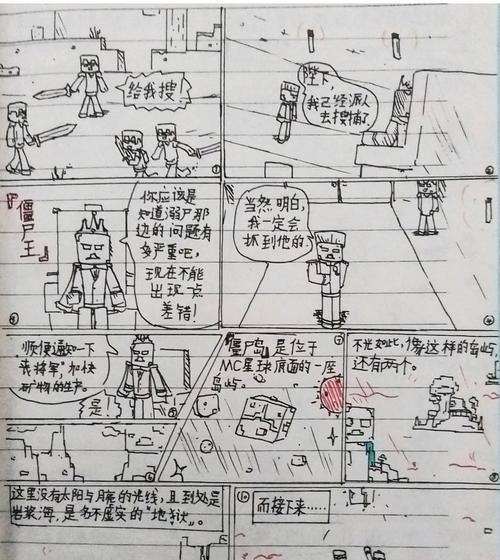 给我搜
①
陛下，
我已经派人
去搜捕了
②
『僵尸王』
你应该是
知道弱尸那
边的问题有
多严重吧，
现在不能
出现一点
差错！
当然明白，
我一定会
抓到他的。
顺便通知一下
加快
矿物的生产。
是！
“僵尸岛”是位于
MC星球底面的一座
岛屿。
不光如此，像这样的岛屿
还有两个。
这里没有太阳与月亮的光线，且到处是
岩浆海，是名不虚实的“地狱”。
⑩
而接下来……